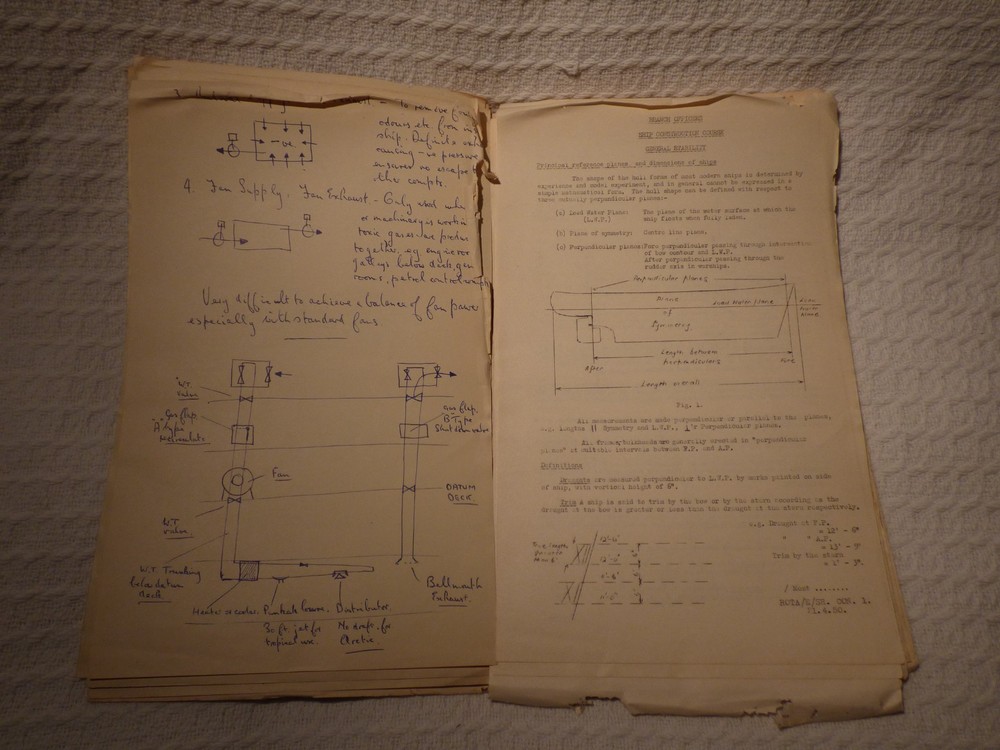 to remove foul
odours etc from in
ship. Definite
causing - ve pressure
ensures no escape to
other compts.
- ve
4. Fan Supply. Fan Exhaust - Only used when
machinery is working
toxic gases are produced
together, eg engineer
galleys below decks, gen
rooms, petrol control
Very difficult to achieve a balance of fan power
especially with standard fans
W.T. valve
Gas flap
"A" Type
Recirculate
Gas flap.
"B" Type
Shut down valve
Fan
DATUM
DECK.
W.T.
valve.
W.T. Trunking
below datum
deck.
Heater or cooler.
Punkah louvre.
Distributor.
Bellmouth
Exhaust.
30 ft. jet for
tropical use.
No drafts, for
Arctic
SHIP CONSTRUCTION COURSE
GENERAL STABILITY
Principal reference planes and dimensions of ships
The shape of the hull forms of most modern ships is determined by
experience and model experiment, and in general cannot be expressed in a
simple mathematical form. The hull shape can be defined with respect to
three mutually perpendicular planes:-
(a) Load Water Plane: The plane of the water surface at which the
(L.W.P.) ship floats when fully laden.
(b) Plane of symmetry: Centre line plane.
(c) Perpendicular planes: Fore perpendicular passing through intersection
of the contour and L.W.P.
After perpendicular passing through the
rudder axis in warships.
Perpendicular planes
Plane
of
Symmetry
Load Water Plane
Length between
perpendiculars
After
Fore
Length overall
Fig. 1.
All measurements are made perpendicular or parallel to the planes,
e.g. Lengths || Symmetry and L.W.P., ⊥'r Perpendicular planes.
All frames/bulkheads are generally erected in "perpendicular
planes" at suitable intervals between F.P. and A.P.
Definitions
Draughts are measured perpendicular to L.W.P. by marks painted on side
of ship, with vertical height of 6".
Trim a ship is said to trim by the bow or by the stern according as the
draught at the bow is greater or less than the draught at the stern respectively.
e.g. Draught at F.P.
= 12' - 6"
" " A.P.
= 13' - 9"
Trim by the stern
= 1' - 3".
12'-6"
12'-0"
/ What ........
21.4.50.